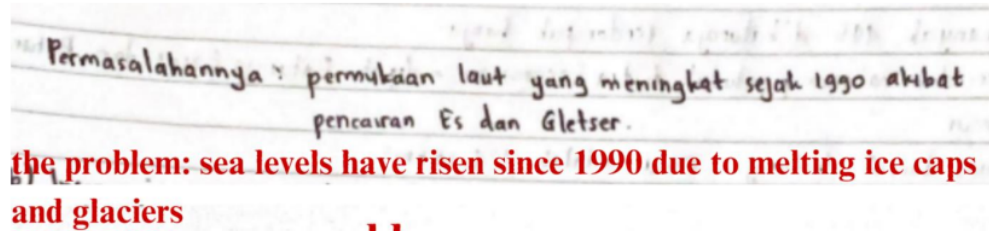 Permasalahannya : permukaan laut yang meningkat sejak 1990 akibat
pencairan Es dan Gletser.
the problem: sea levels have risen since 1990 due to melting ice caps
and glaciers